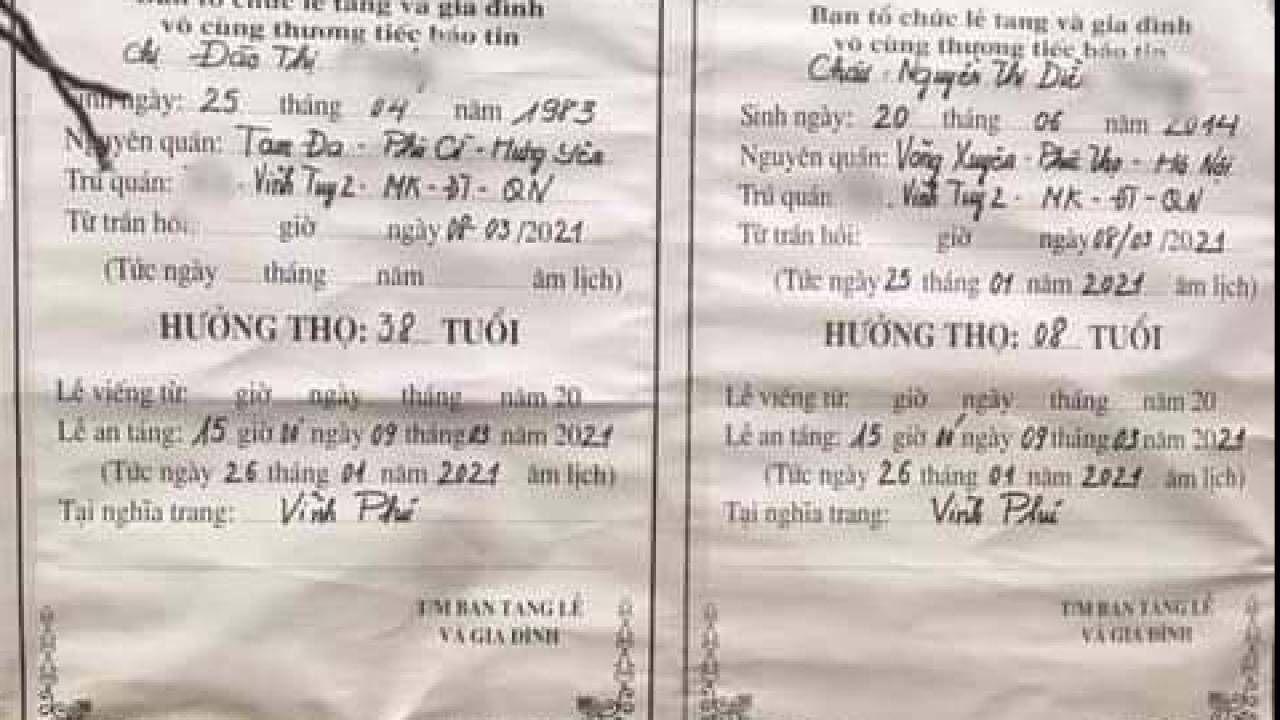 Ban tổ chức lễ tang và gia đình
vô cùng thương tiếc báo tin
Chị Đào Thị
Sinh ngày: 25 tháng 04 năm 1983
Nguyên quán: Tam Đa - Phù Cừ - Hưng Yên
Trú quán: Vĩnh Tuy 2 - MK - ĐT - QN
Từ trần hồi: giờ ngày 08-03/2021
(Tức ngày tháng năm âm lịch)
HƯỞNG THỌ: 38 TUỔI
Lễ viếng từ: giờ ngày tháng năm 20
Lễ an táng: 15 giờ ngày 09 tháng 03 năm 2021
(Tức ngày 26 tháng 01 năm 2021 âm lịch)
Tại nghĩa trang: Vĩnh Phú
T/M BAN TANG LỄ
VÀ GIA ĐÌNH
Ban tổ chức lễ tang và gia đình
vô cùng thương tiếc báo tin
Cháu - Nguyễn Thị
Sinh ngày: 20 tháng 06 năm 2014
Nguyên quán: Võng Xuyên - Phúc Thọ - Hà Nội
Trú quán Vĩnh Tuy 2 - MK - ĐT - QN
Từ trần hồi: giờ ngày 08/03/2021
(Tức ngày 25 tháng 01 năm 2021 âm lịch)
HƯỞNG THỌ: 08 TUỔI
Lễ viếng từ: giờ ngày tháng năm 20
Lễ an táng: 15 giờ ngày 09 tháng 03 năm 2021
(Tức ngày 26 tháng 01 năm 2021 âm lịch)
Tại nghĩa trang: Vĩnh Phú
T/M BAN TANG LỄ
VÀ GIA ĐÌNH